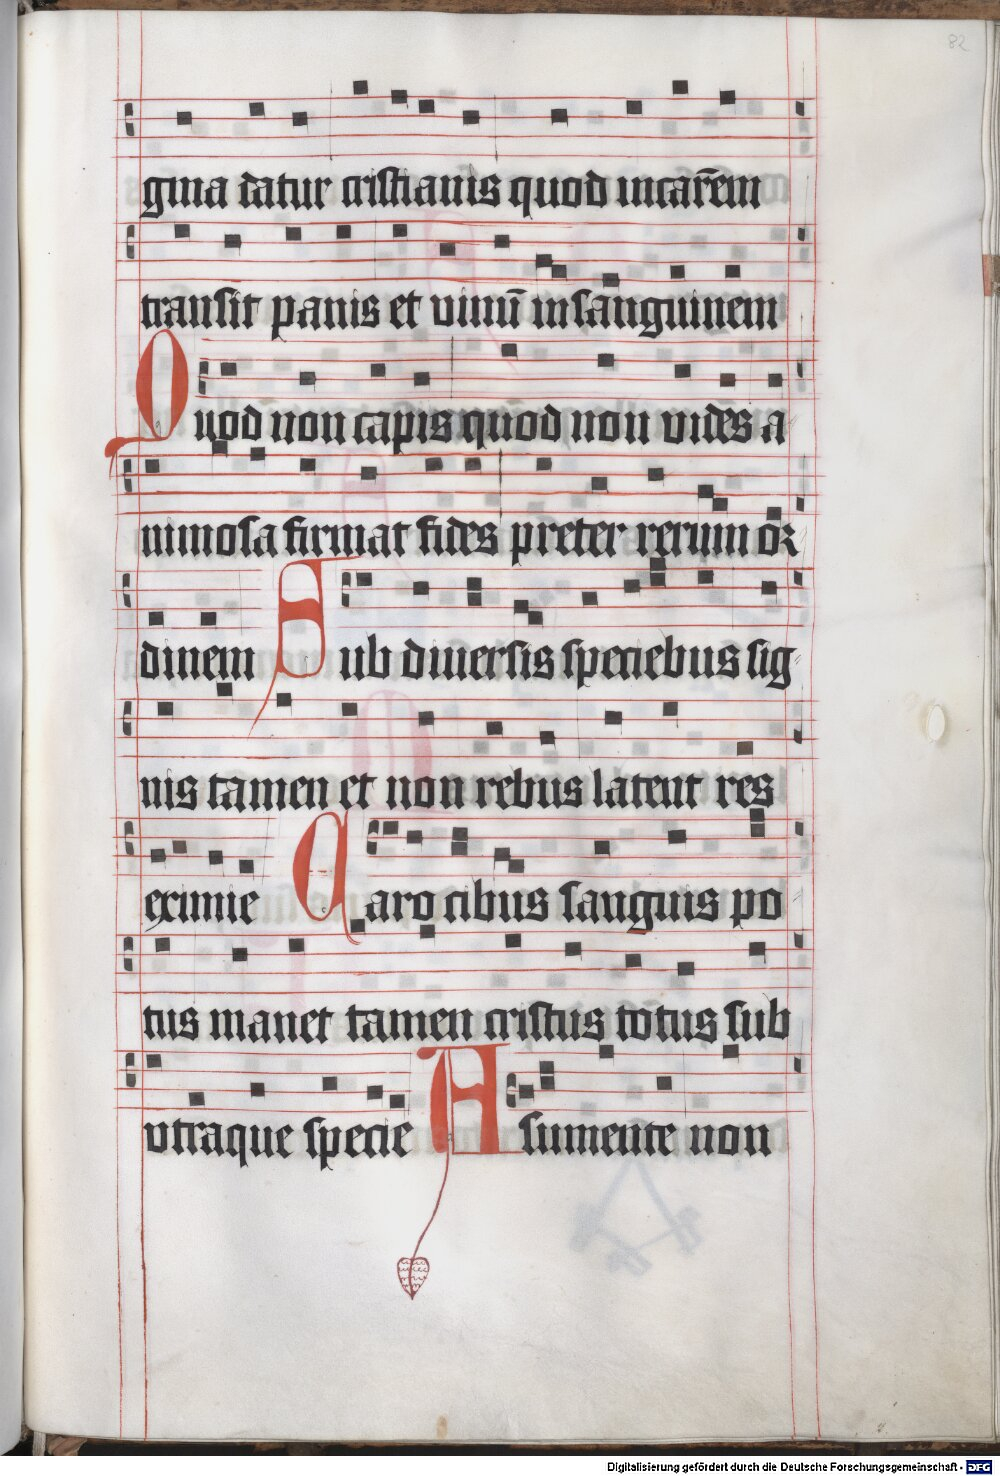 82
gma datur cristianis quod in carnem
transit panis et vinū in sanguinem
Quod non capis quod non vides a
nimosa firmat fides preter rerum or
dinem Sub diuersis speciebus sig
nis tamen et non rebus latent res
eximie Caro cibus sanguis po
tus manet tamen cristus totus sub
vtraque specie A sumente non
Digitalisierung gefördert durch die Deutsche Forschungsgemeinschaft - DFG